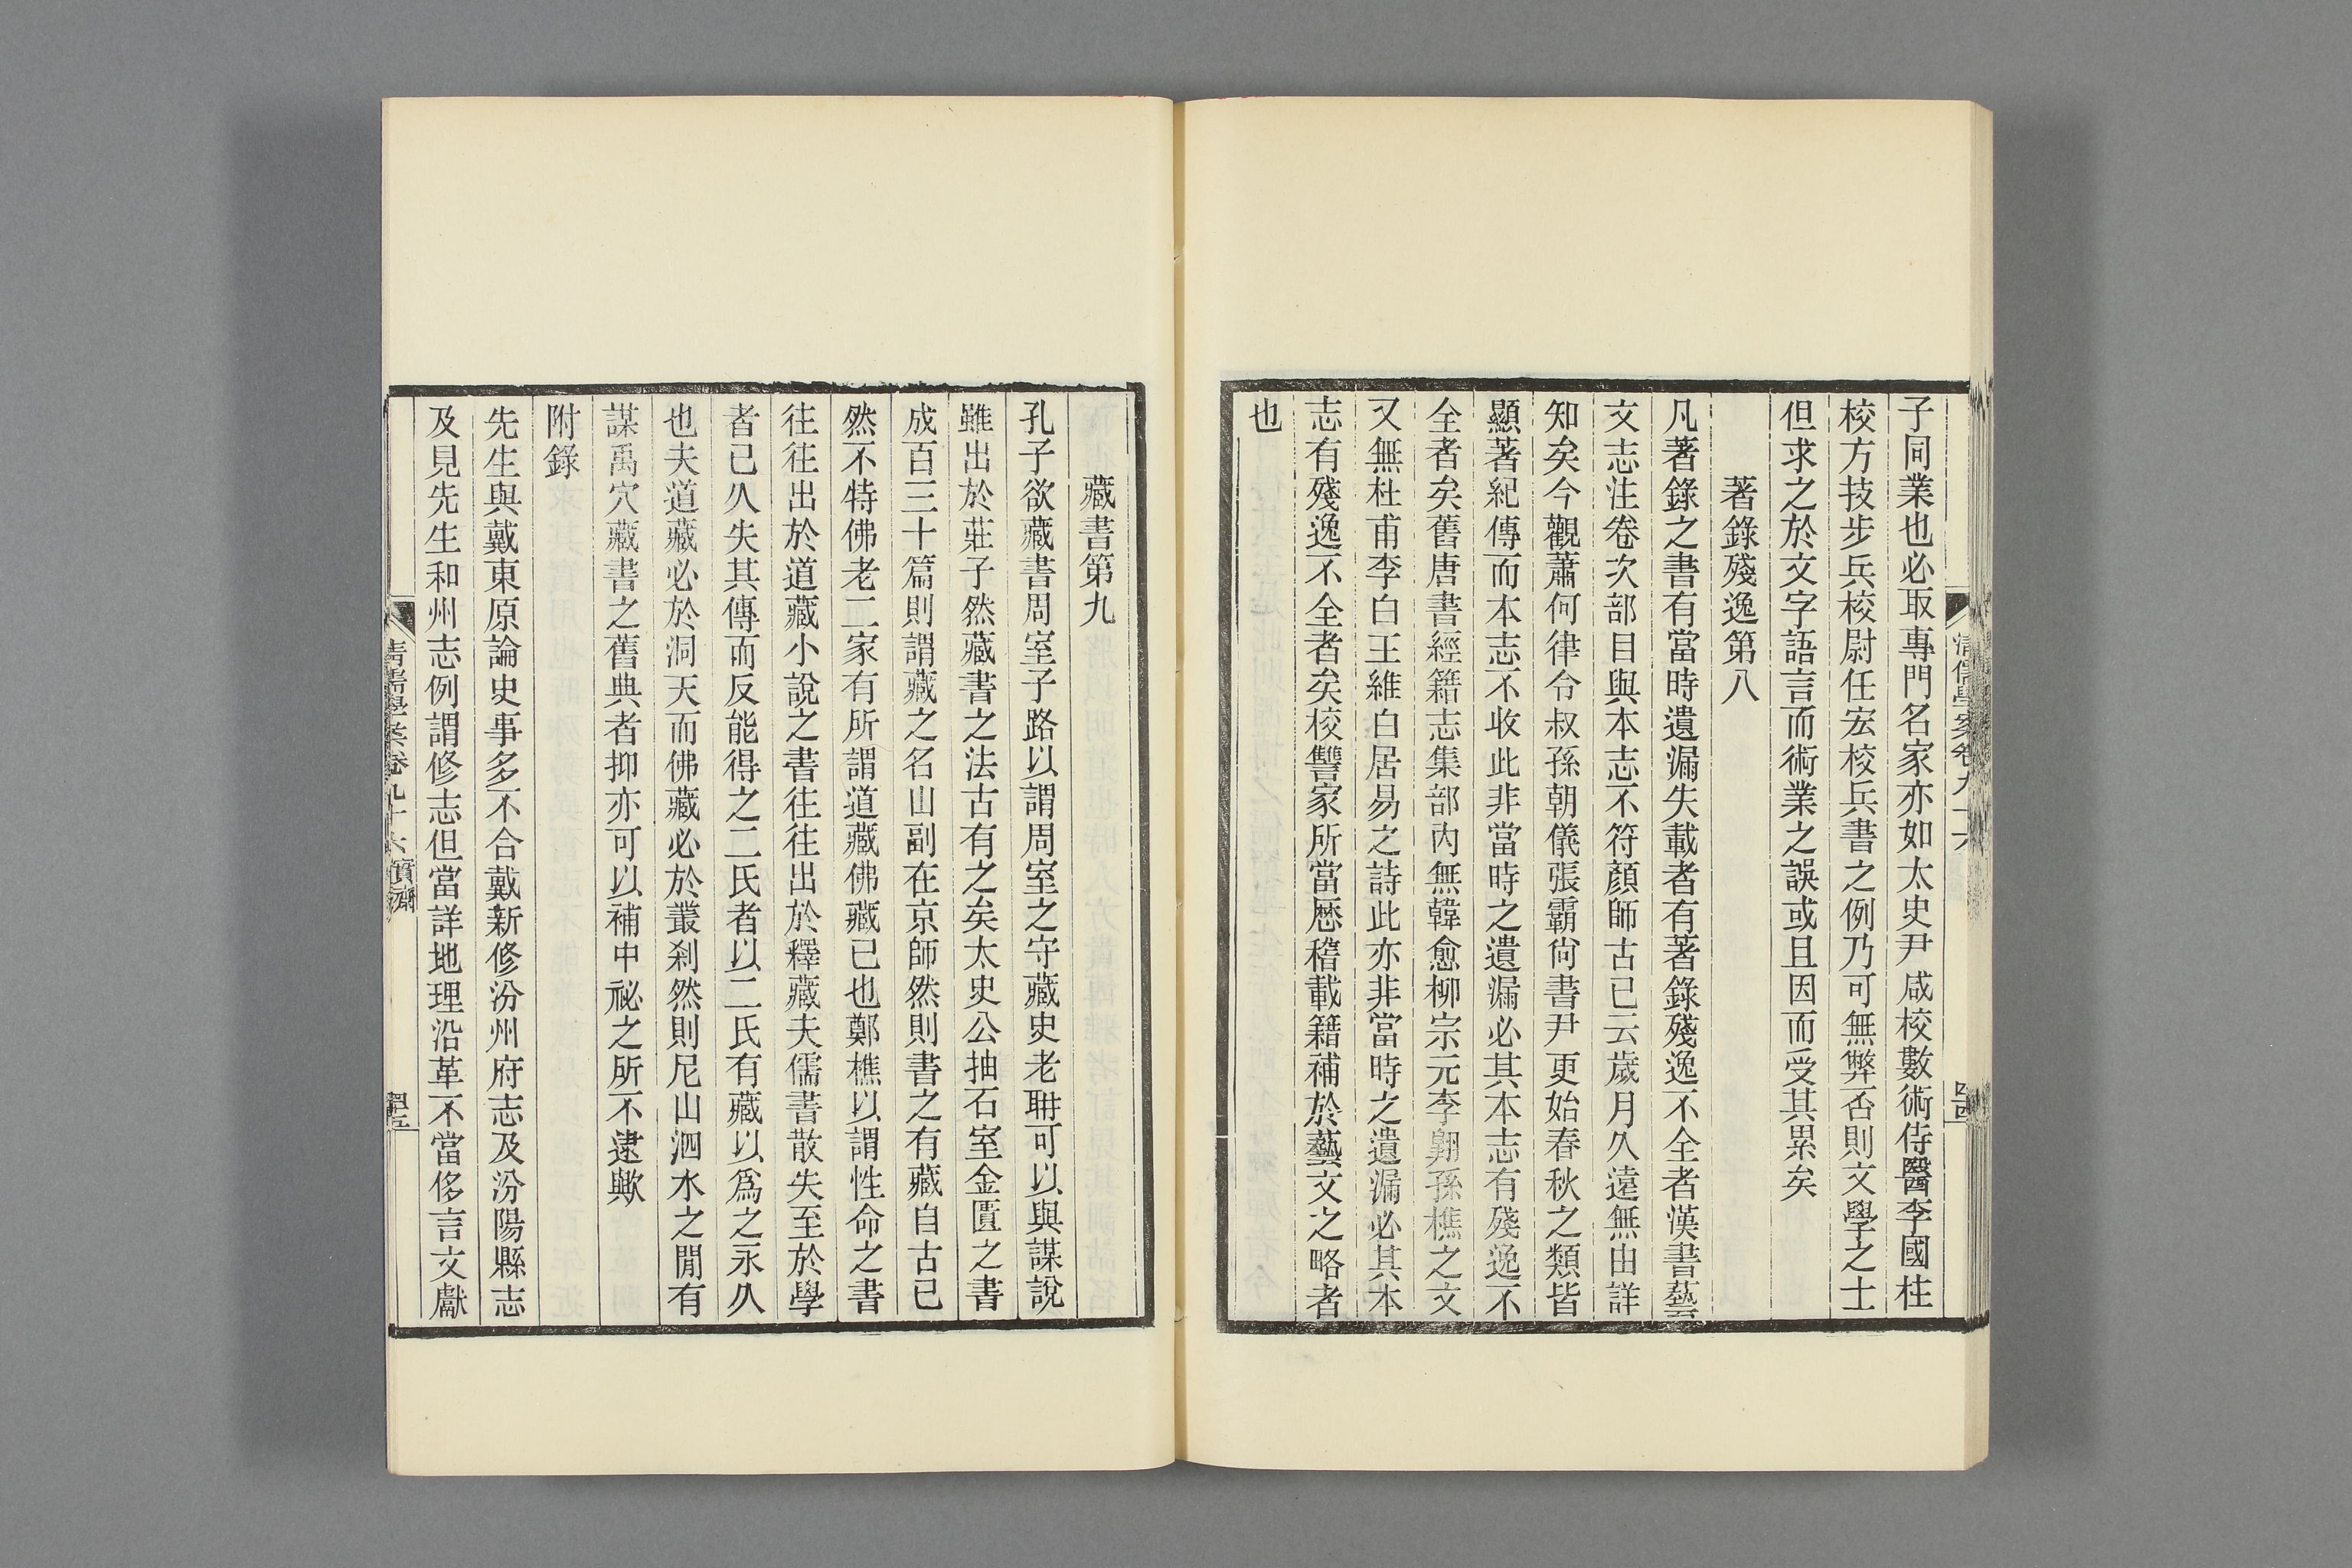 子同業也必取專門名家亦如太史尹咸校數術侍醫李國柱
校方技步兵校尉任宏校兵書之例乃可無弊否則文學之士
但求之於文字語言而術業之誤或且因而受其累矣
著錄殘逸第八
凡著錄之書有當時遺漏失載者有著錄殘逸不全者漢書藝
文志注卷次部目與本志不符顏師古已云歲月久遠無由詳
知矣今觀蕭何律令叔孫朝儀張霸尙書尹更始春秋之類皆
顯著紀傳而本志不收此非當時之遺漏必其本志有殘逸不
全者矣舊唐書經籍志集部內無韓愈柳宗元李翱孫樵之文
又無杜甫李白王維白居易之詩此亦非當時之遺漏必其本
志有殘逸不全者矣校讐家所當歷稽載籍補於藝文之略者
也
清儒學案卷九十六
四四
藏書第九
孔子欲藏書周室子路以謂周室之守藏史老聃可以與謀說
雖出於莊子然藏書之法古有之矣太史公抽石室金匱之書
成百三十篇則謂藏之名山副在京師然則書之有藏自古已
然不特佛老二家有所謂道藏佛藏已也鄭樵以謂性命之書
往往出於道藏小說之書往往出於釋藏夫儒書散失至於學
者已久失其傳而反能得之二氏者以二氏有藏以爲之永久
也夫道藏必於洞天而佛藏必於叢刹然則尼山泗水之閒有
謀禹穴藏書之舊典者抑亦可以補中祕之所不逮歟
附錄
先生與戴東原論史事多不合戴新修汾州府志及汾陽縣志
及見先生和州志例謂修志但當詳地理沿革不當侈言文獻
清儒學案卷九十六 實齋
四五